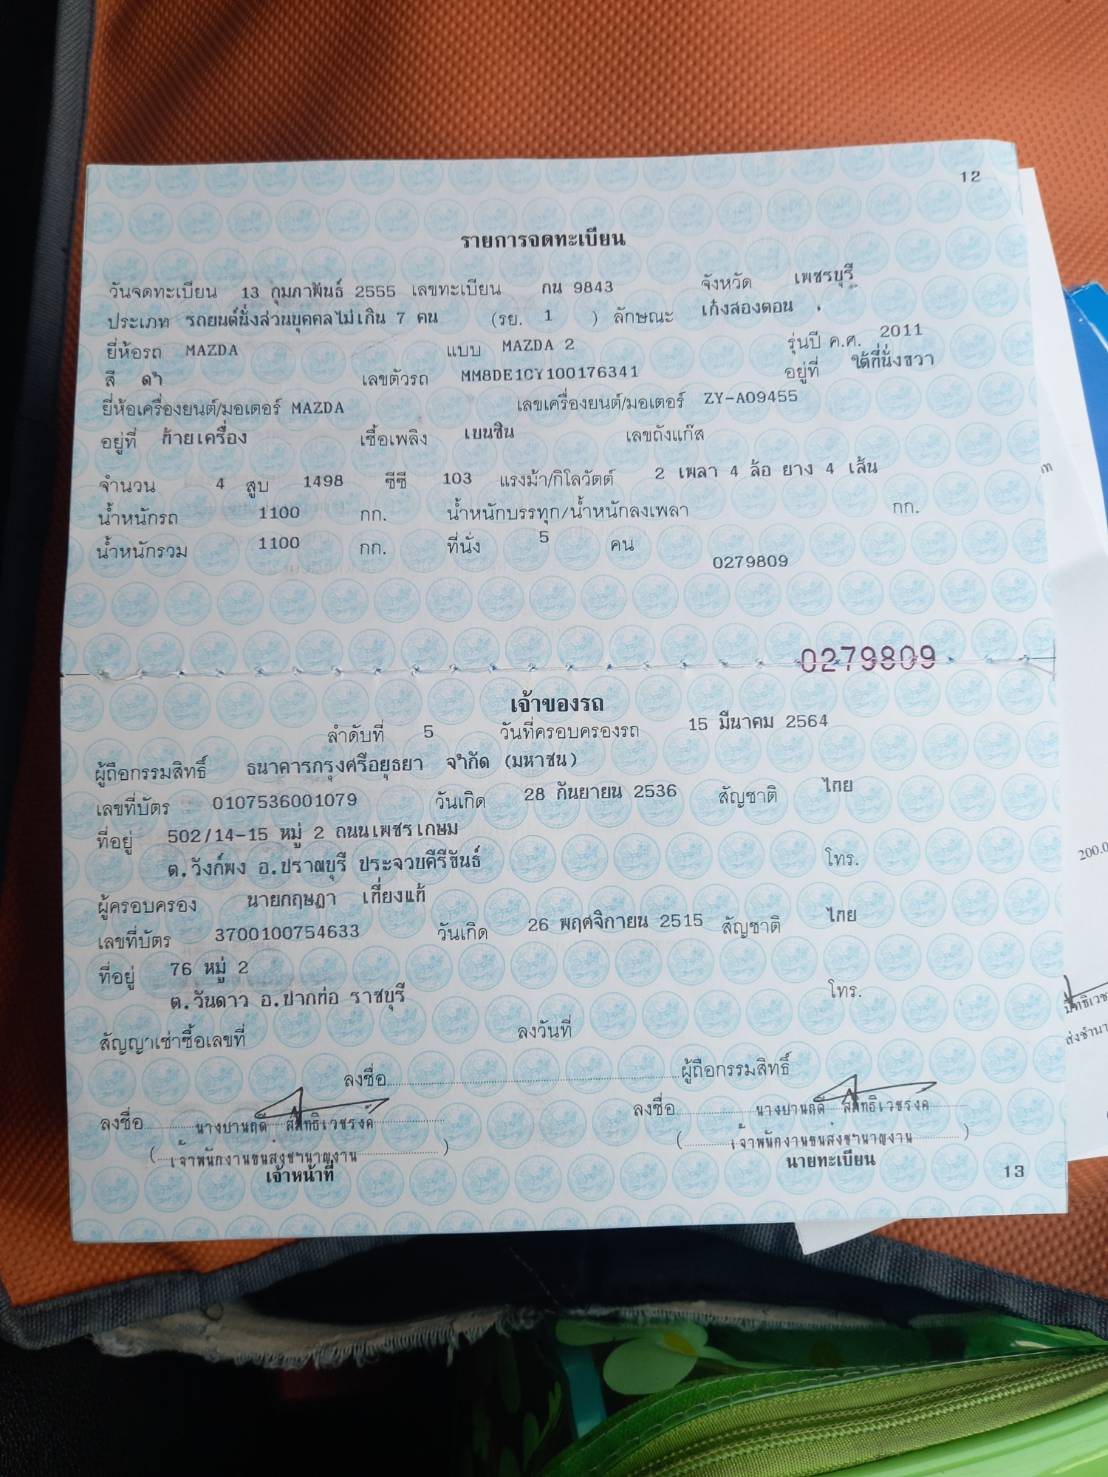 12
รายการจดทะเบียน
วันจดทะเบียน 13 กุมภาพันธ์ 2555 เลขทะเบียน กน 9843 จังหวัด เพชรบุรี
ประเภท รถยนต์นั่งส่วนบุคคลไม่เกิน 7 คน (รย. 1 ) ลักษณะ เก๋งสองตอน
ยี่ห้อรถ MAZDA แบบ MAZDA 2 รุ่นปี ค.ศ. 2011
สี ดำ เลขตัวรถ MM8DE1CY100176341 อยู่ที่ ใต้ที่นั่งขวา
ยี่ห้อเครื่องยนต์/มอเตอร์ MAZDA เลขเครื่องยนต์/มอเตอร์ ZY-A09455
อยู่ที่ ท้ายเครื่อง เชื้อเพลิง เบนซิน เลขถังแก๊ส
จำนวน 4 สูบ 1498 ซีซี 103 แรงม้า/กิโลวัตต์ 2 เพลา 4 ล้อ ยาง 4 เส้น
น้ำหนักรถ 1100 กก. น้ำหนักบรรทุก/น้ำหนักลงเพลา กก.
น้ำหนักรวม 1100 กก. ที่นั่ง 5 คน
0279809
0279809
เจ้าของรถ
ลำดับที่ 5 วันที่ครอบครองรถ 15 มีนาคม 2564
ผู้ถือกรรมสิทธิ์ ธนาคารกรุงศรีอยุธยา จำกัด (มหาชน)
เลขที่บัตร 0107536001079 วันเกิด 28 กันยายน 2536 สัญชาติ ไทย
ที่อยู่ 502/14-15 หมู่ 2 ถนนเพชรเกษม
ต.วังก์พง อ.ปราณบุรี ประจวบคีรีขันธ์ โทร.
ผู้ครอบครอง นายกฤษฎา เที่ยงแท้
เลขที่บัตร 3700100754633 วันเกิด 26 พฤศจิกายน 2515 สัญชาติ ไทย
ที่อยู่ 76 หมู่ 2
ต.วันดาว อ.ปากท่อ ราชบุรี โทร.
สัญญาเช่าซื้อเลขที่ ลงวันที่
ลงชื่อ ผู้ถือกรรมสิทธิ์
ลงชื่อ นางปานฤดี สิทธิเวชรงค ลงชื่อ นางปานฤดี สิทธิเวชรงค
( เจ้าพนักงานขนส่งชำนาญงาน ) ( เจ้าพนักงานขนส่งชำนาญงาน )
เจ้าหน้าที่ นายทะเบียน
13
200.0